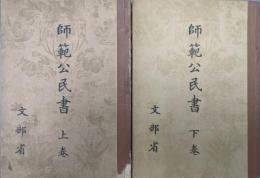 師範公民書 上巻
文部省
師範公民書 下巻
文部省